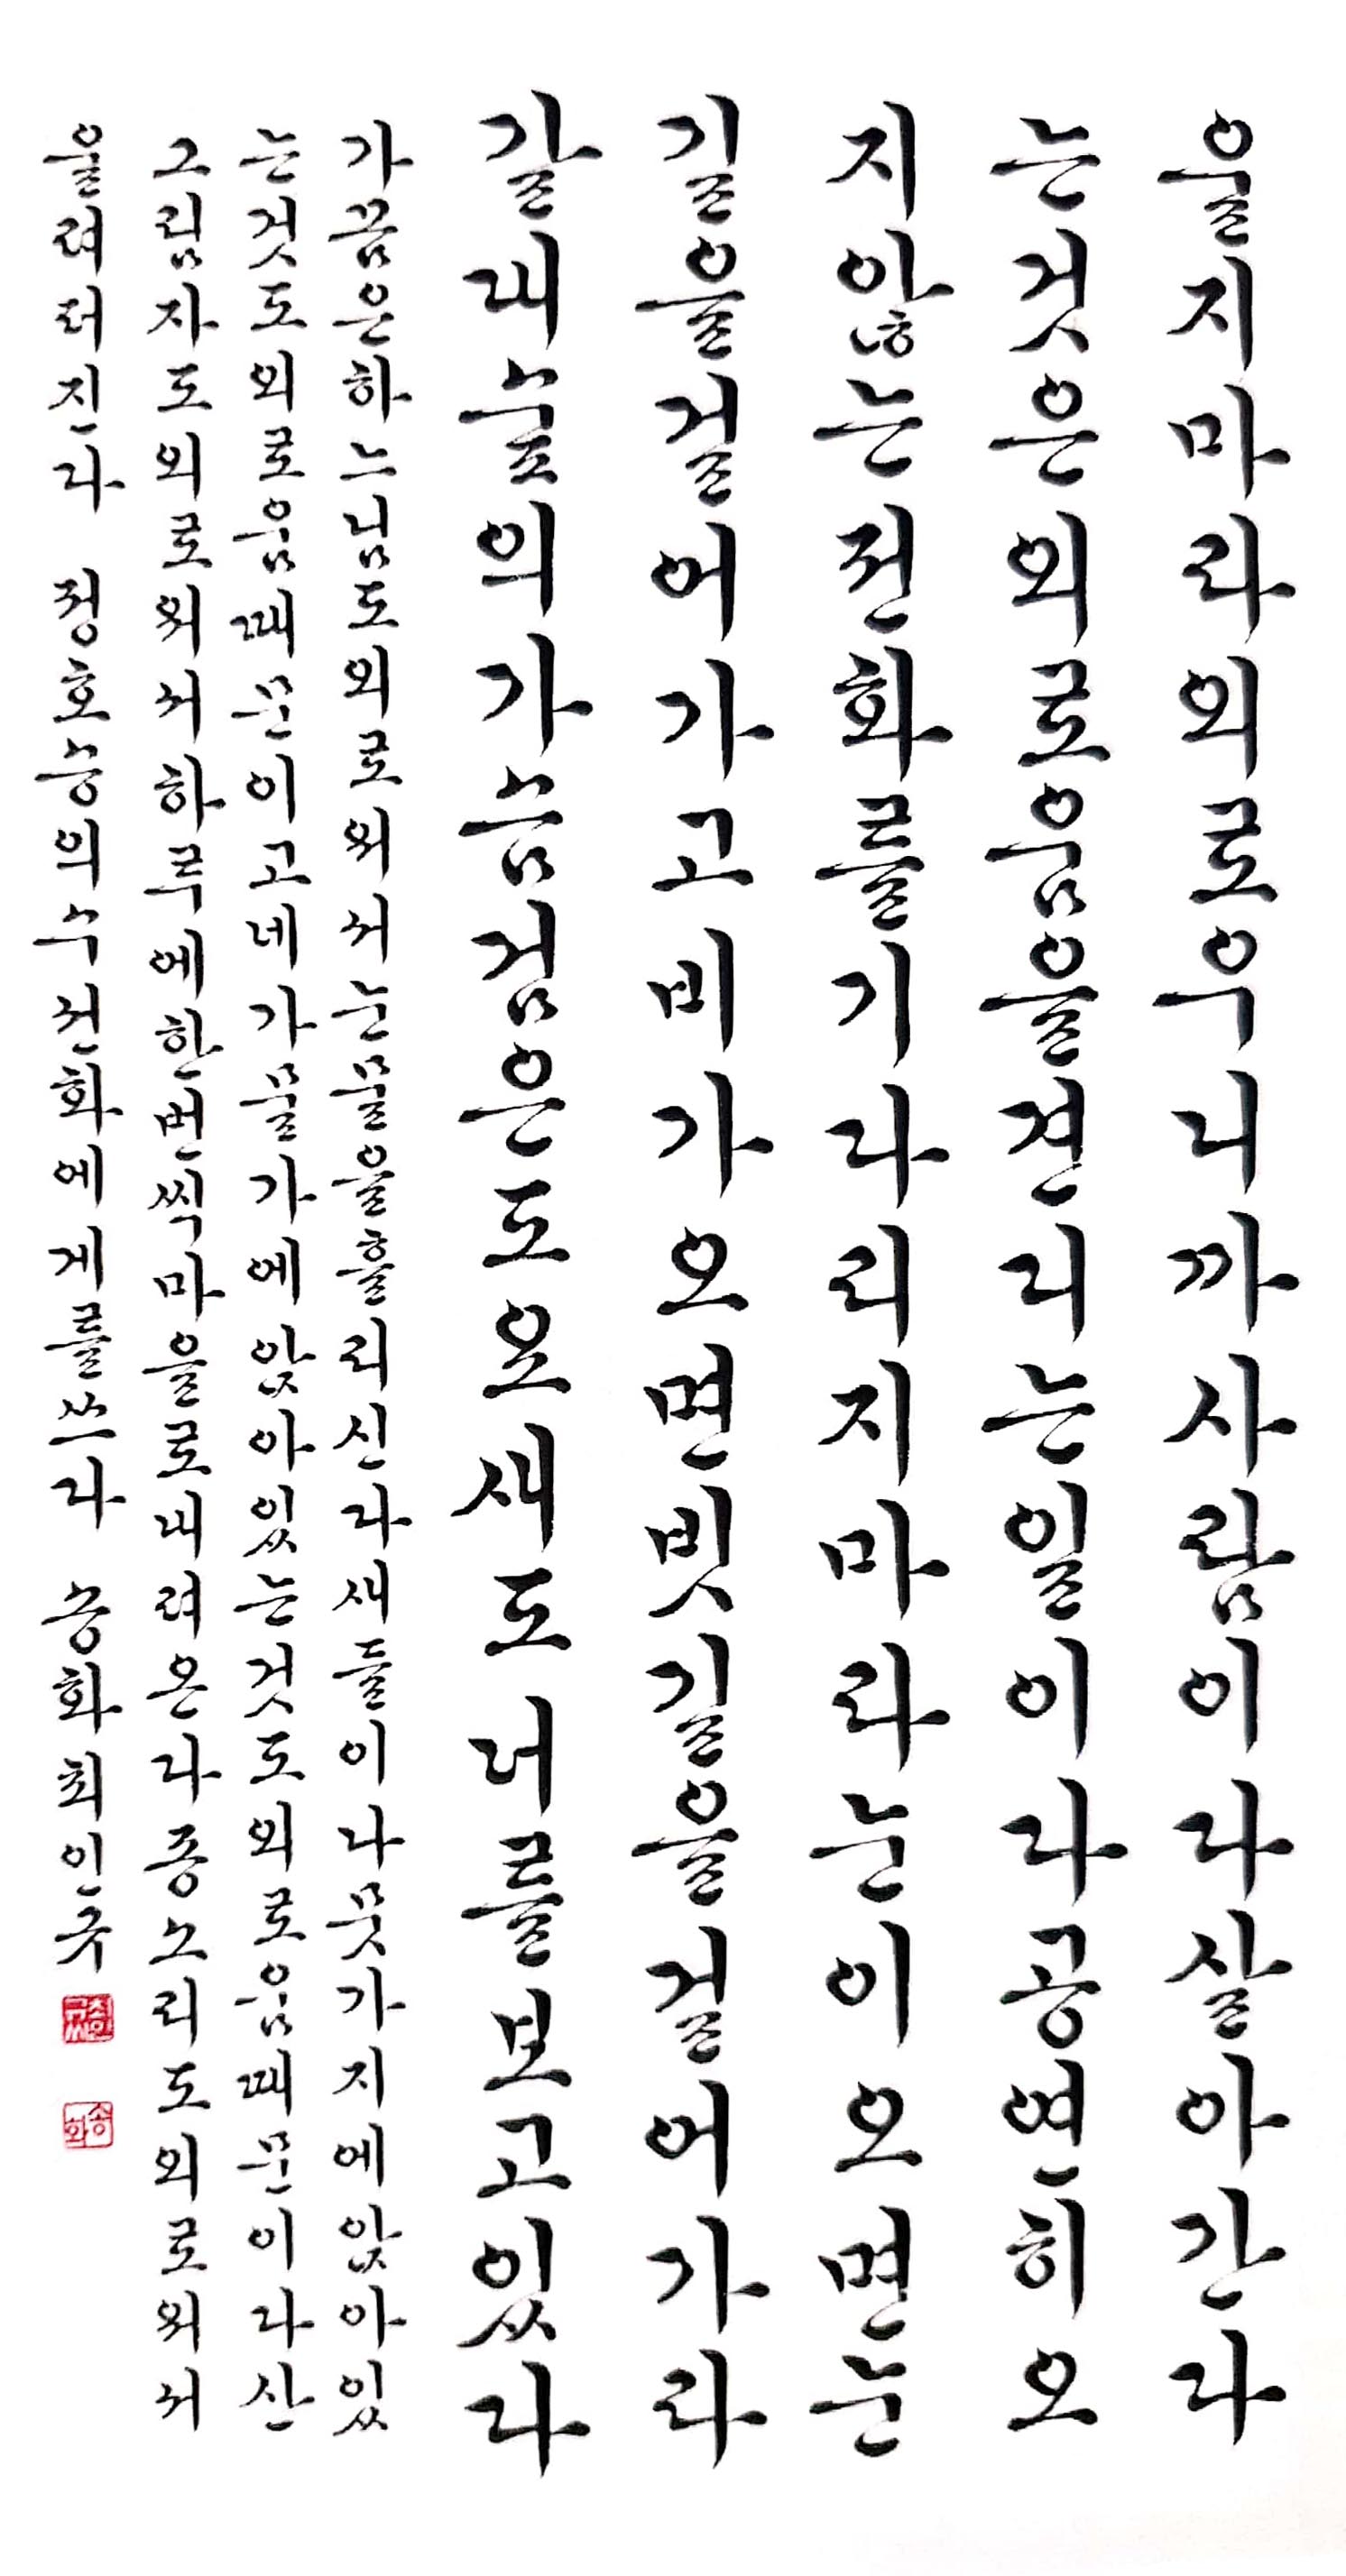 울지마라외로우니까사람이다살아간다
는것은외로움을견디는일이다공연히오
지않는전화를기다리지마라눈이오면눈
길을걸어가고비가오면빗길을걸어가라
갈대숲의가슴검은도요새도너를보고있다
가끔은하느님도외로워서눈물을흘리신다새들이나뭇가지에앉아있
는것도외로움때문이고네가물가에앉아있는것도외로움때문이다산
그림자도외로워서하루에한번씩마을로내려온다종소리도외로워서
울려퍼진다 정호승의수선화에게를쓰다 송화최인규
최인규
송화